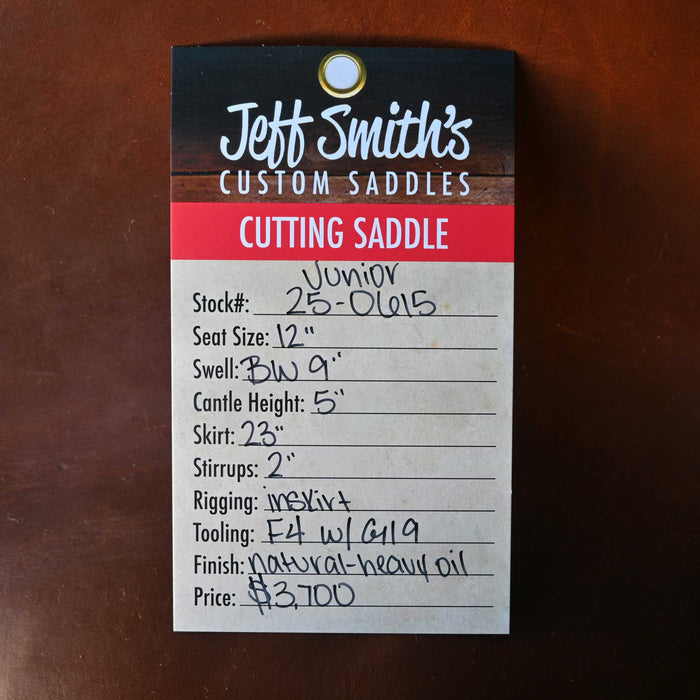 Jeff Smith's
CUSTOM SADDLES
CUTTING SADDLE
Junior
Stock#: 25-0615
Seat Size: 12"
Swell: BW 9"
Cantle Height: 5"
Skirt: 23"
Stirrups: 2"
Rigging: inskirt
Tooling: F4 w/ G19
Finish: natural-heavy oil
Price: $3,700